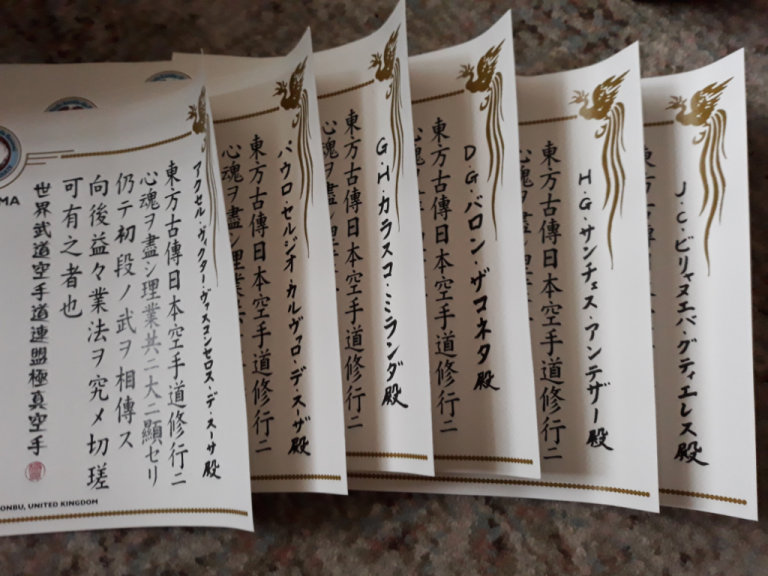 J・C・ビリャヌエバ・グティエレス殿
H・G・サンチェス・アンテザー殿
東方古傳日本空手道修行ニ
D・G・バロン・ザコネタ殿
東方古傳日本空手道修行ニ
G・H・カラスコ・ミランダ殿
東方古傳日本空手道修行ニ
心魂ヲ盡シ
パウロ・セルジオ・カルヴァロ・デ・スーザ殿
東方古傳日本空手道修行ニ
心魂ヲ盡シ理業
アクセル・ヴィクター・ヴァスコンセロス・デ・スーサ殿
東方古傳日本空手道修行ニ
心魂ヲ盡シ理業共ニ大ニ顯セリ
仍テ初段ノ武ヲ相傳ス
向後益々業法ヲ究メ切瑳
可有之者也
世界武道空手道連盟極真空手
MA
ONBU, UNITED KINGDOM